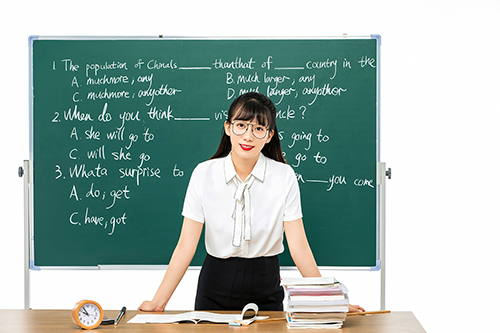 1 The population of China's ______ thanthat of ______ country in the
A. muchmore, any B. Much larger, any
C. muchmore, anyother D. Much larger, anyother
2. When do you think ______ ?
A. she will go to going to
C. will she go go to
3. Whata surprise to ______ you come
A. do, get
C. have, got